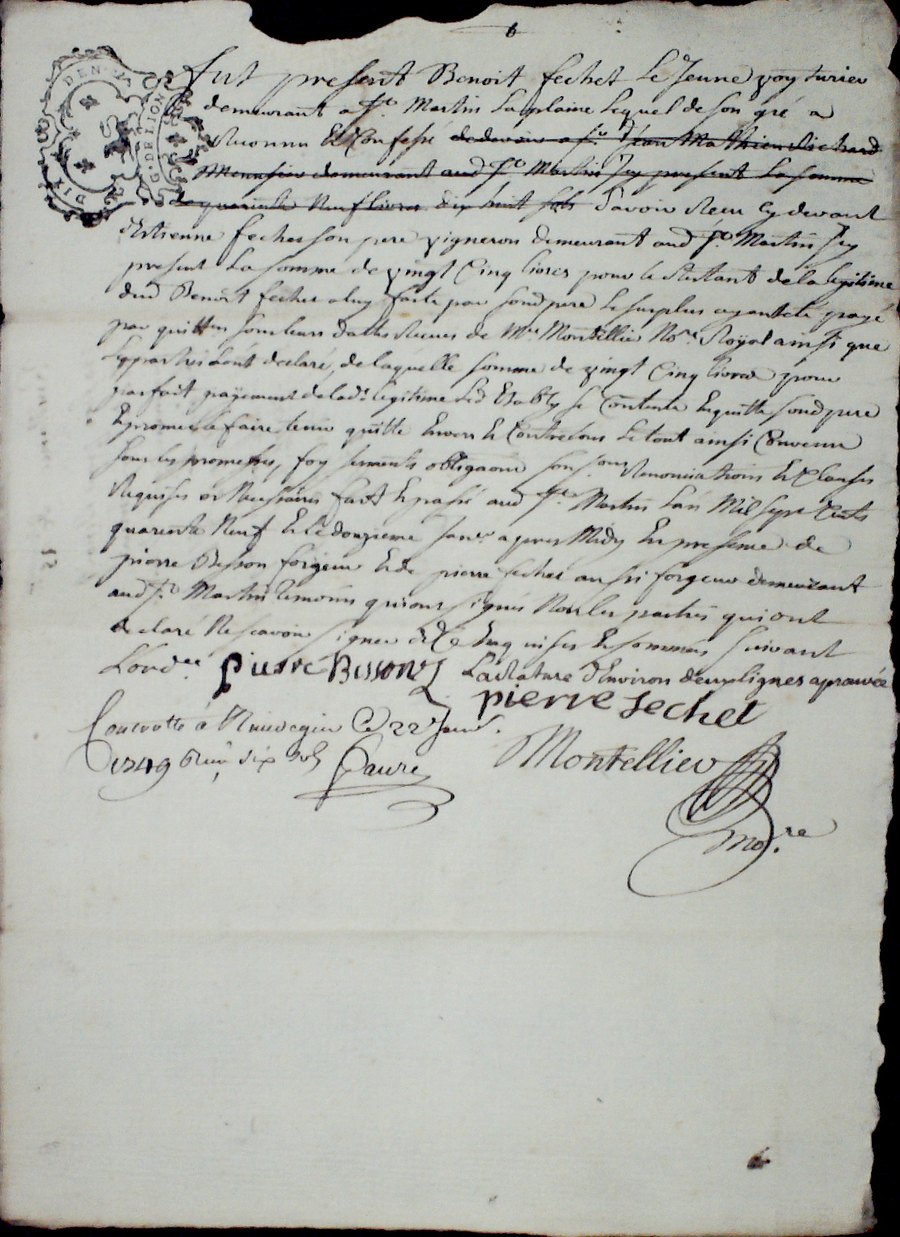 Fut present Benoit fechet Le Jeune voyturier
demeurant a St. Martin La plaine Lequel de son gré a
Reconnu Et Confessé de devoir a sr. Jean Mathieu Richard
Menusier demeurant aud St. Martin Icy present La somme
de quarente Neuf livres dix huit sols D'avoir Receu Cy devant
d'estienne fechet son pere vigneron demeurant aud St. Martin Icy
present La somme de vingt Cinq livres pour le Restant de la legitime
dud Benoit fechet a luy faite par sond pere Le surplus ayant eté payé
par quittes sous leurs dattes Receues de Mre. Montellier Nore. Royal ainsi que
les parties L'ont declaré, de laquelle somme de vingt Cinq livres pour
parfait payement de lad. legitime Led Establÿ se Contente En quitte sond pere
Et promet Le faire tenir quitte Envers Et Contre tous Le tout ainsi Convenu
sous les promesses, foy serments obligaons renonciations Et Clauses
Requises et Necessaires fait Et passé aud St. Martin L'an Mil sept Cents
quarente Neuf Et Le douzieme Janr. apres Midy En presence de
pierre Besson forgeur Et de pierre fechet aussi forgeur demeurant
aud St. Martin temoins qui ont signés Non les parties qui ont
declaré Ne scavoir signer de Ce Enquises Et sommees suivant
L'ordce. pierre Besson La Rature d'Environ deux lignes aprouvée
pierre fechet
Controllé à Rivedegier Ce 22e Janv.
1749 Recu six sols Faure Montellier
nore
DEN
G. DE LION